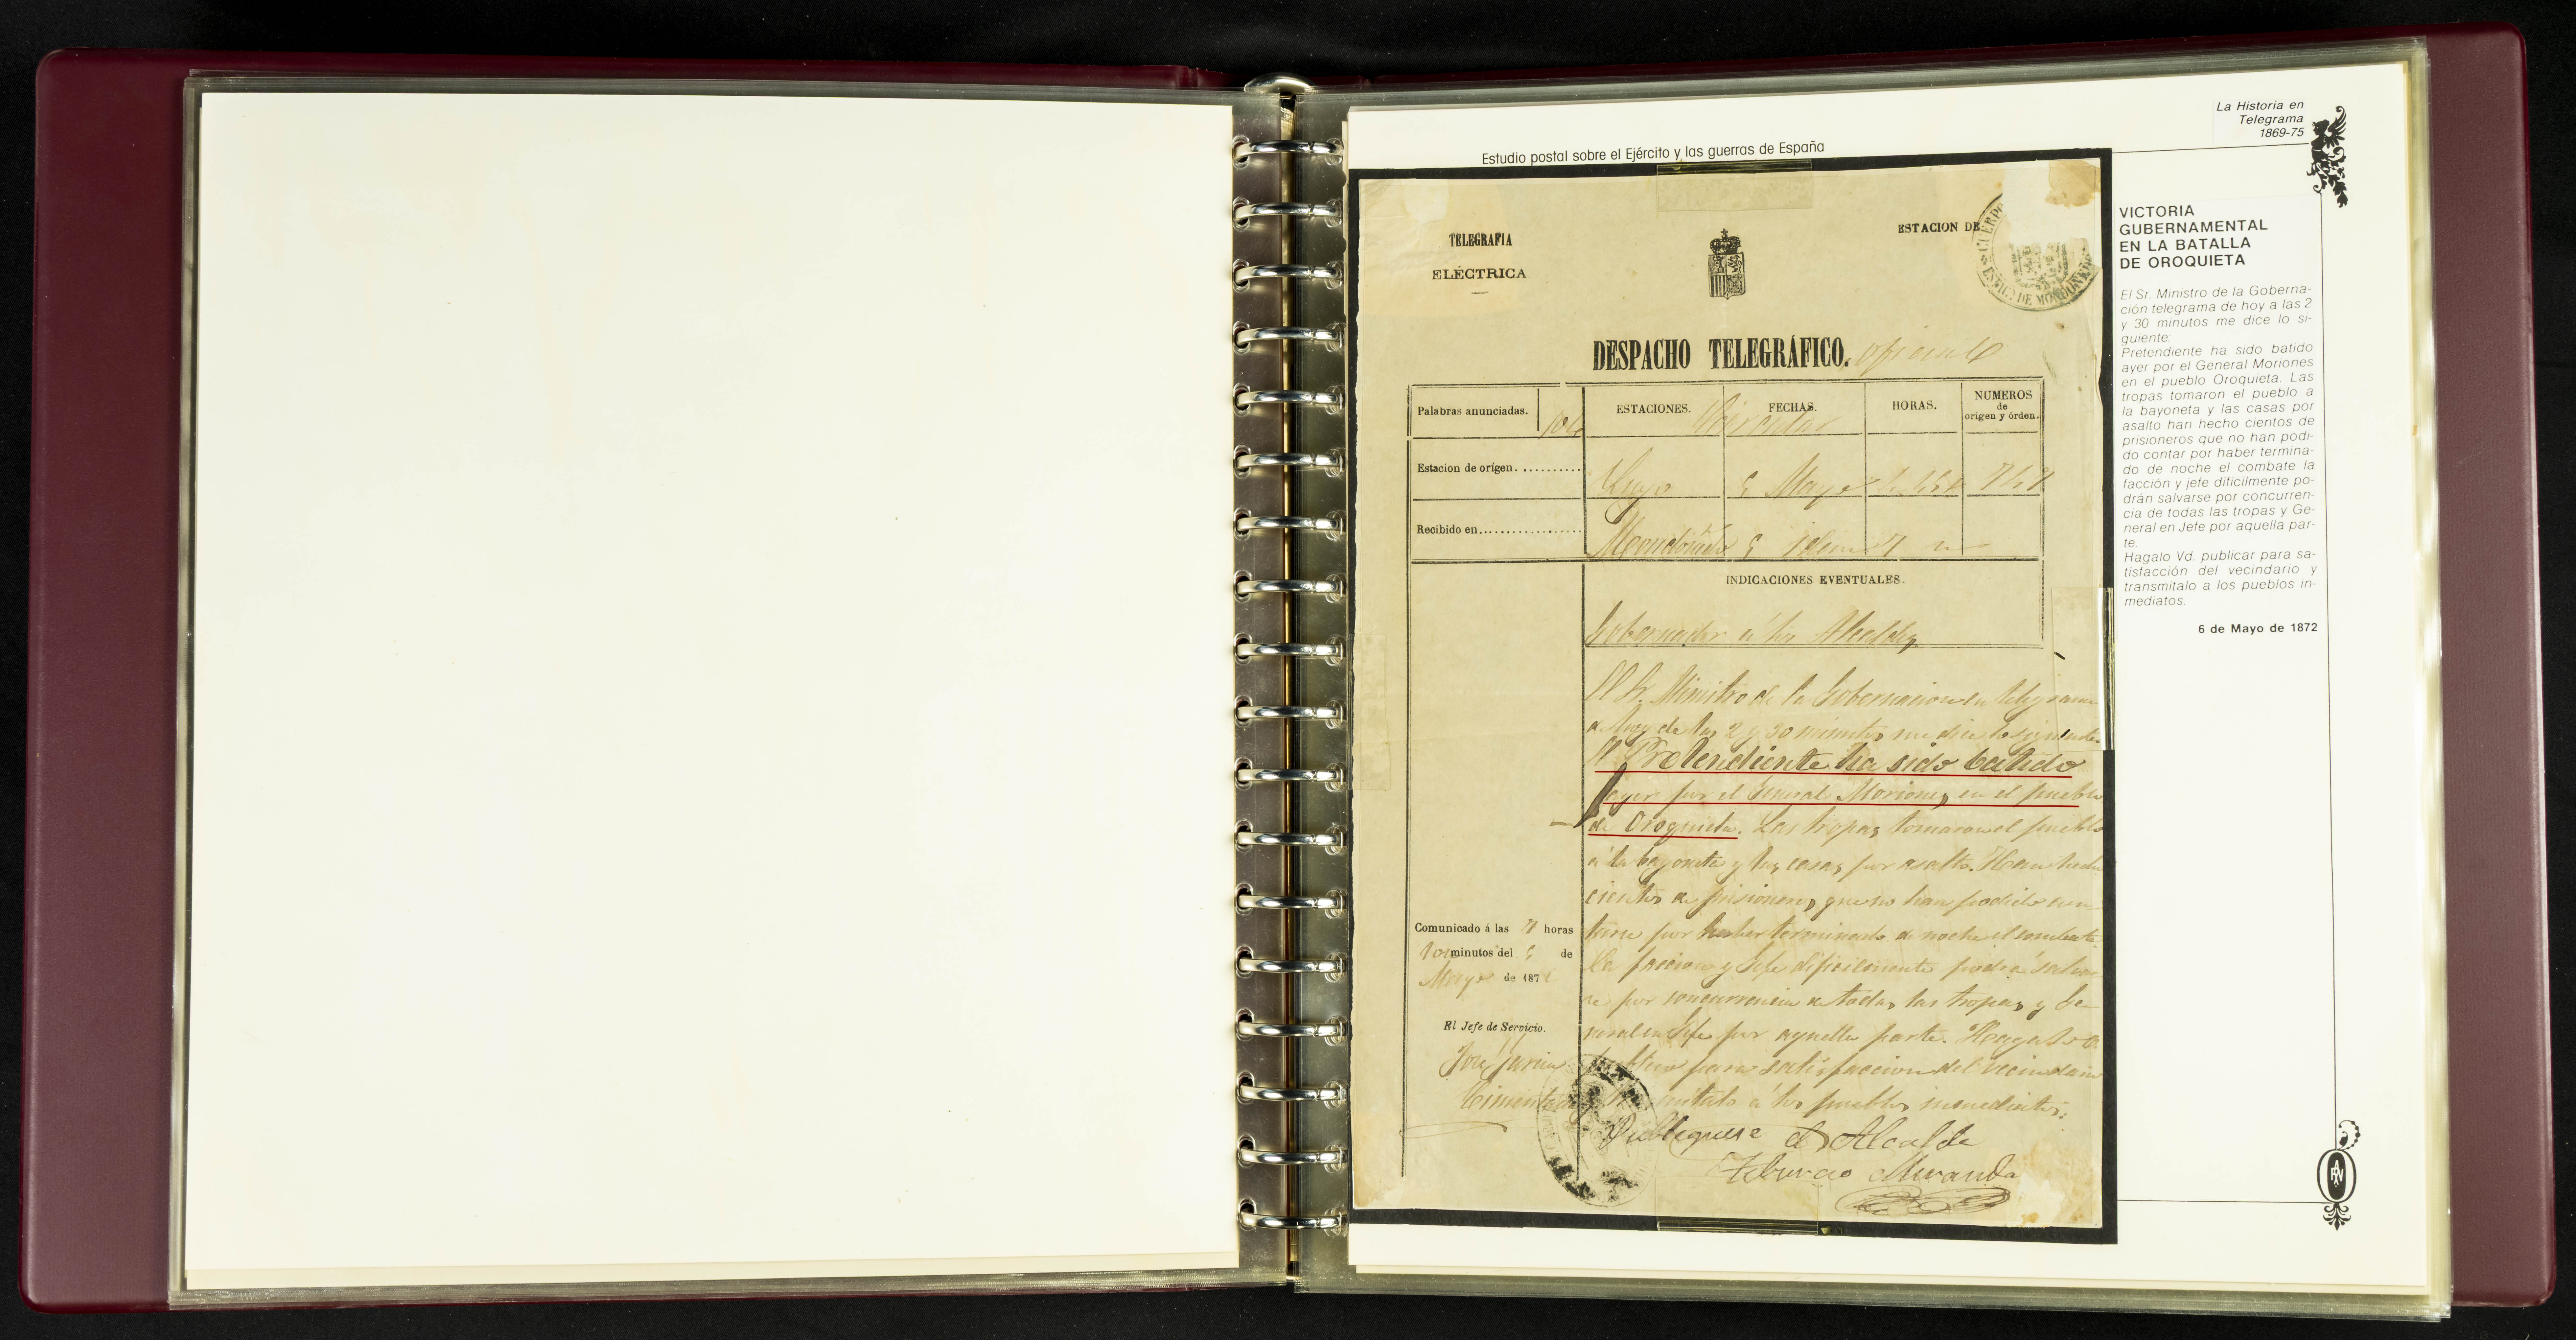 La Historia en
Telegrama
1869-75
Estudio postal sobre el Ejército y las guerras de España
TELEGRAFIA
ELÉCTRICA
ESTACION DE
CUERPO
DE MONDOÑEDO
DESPACHO TELEGRÁFICO. oficial
Palabras anunciadas. 106
ESTACIONES. FECHAS. HORAS. NUMEROS de origen y órden.
Circular
Estacion de orígen...........
Lugo Mayo
Recibido en..................
Mondoñedo idem
INDICACIONES EVENTUALES.
Gobernador á los Alcaldes
El Sr. Ministro de la Gobernacion en telegrama
de hoy de las 2 y 30 minutos me dice lo siguiente
El Pretendiente ha sido batido
ayer por el General Moriones en el pueblo
de Oroquieta. Las tropas tomaron el pueblo
á la bayoneta y las casas por asalto. Han hecho
cientos de prisioneros que no han podido con
tarse por haber terminado de noche el combate
la faccion y Jefe dificilmente podrá salvar
se por concurrencia de todas las tropas y Ge
neral en Jefe por aquella parte. Hagalo V.
para satisfaccion del vecindario
á los pueblos inmediatos.
Publiquese el Alcalde
Tiburcio Miranda
Comunicado á las 7 horas
minutos del de
Mayo de 1872
El Jefe de Servicio.
José
VICTORIA
GUBERNAMENTAL
EN LA BATALLA
DE OROQUIETA
El Sr. Ministro de la Goberna-
ción telegrama de hoy a las 2
y 30 minutos me dice lo si-
guiente.
Pretendiente ha sido batido
ayer por el General Moriones
en el pueblo Oroquieta. Las
tropas tomaron el pueblo a
la bayoneta y las casas por
asalto han hecho cientos de
prisioneros que no han podi-
do contar por haber termina-
do de noche el combate la
facción y jefe dificilmente po-
drán salvarse por concurren-
cia de todas las tropas y Ge-
neral en Jefe por aquella par-
te.
Hagalo Vd. publicar para sa-
tisfacción del vecindario y
transmitalo a los pueblos in-
mediatos.
6 de Mayo de 1872